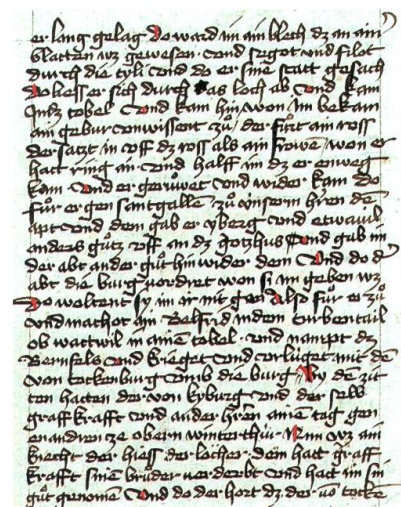 er lang gelag do ward im ain blech dz an ain
blatten wz gewesen vnd segot vnd filot
durch die tyli vnd do er sine statt gesach
do liess er sich durch das loch ab vnd kam
in dz tobel vnd kam hin won im bekam
ain gebur vonwissent zů der fůrt ain ross
der satzt in vff dz ross als ain frowe won er
hatt ring an vnd halff im dz er enweg
kam vnd er gerůwet vnd wider kam do
fůr er gen santgallē zů vnserm hren dē
apt vnd dem gab er yberg vnd etwauil
anders gůtz vff an dz gotzhus vnd gab im
der abt ander gůt hin wider dem vnd do d
abt die burg vordret won si im geben wz
do woltent sy im ir nit gen also fůr er zů
vnd machot ain Belfrid in dem turbentail
ob wattwil in ainē tobel vnd nampt dz
Bernfels vnd krieget vnd vrluget mit dē
von tockenburg vmb die burg By dē zit
ten hatten der von kyburg vnd der selb
graff krafft vnd ander hren ainē tag gen
en andren ze obern winterthur Nun wz ain
knecht der hiess der locher dem hatt graff
krafft sinē brůder verderbt vnd hatt im sin
gůt genomē vnd do der hort dz der vō tocke